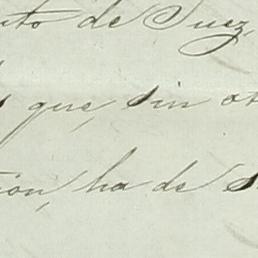 uto de Juez,
que, sin ot
ion, ha de s